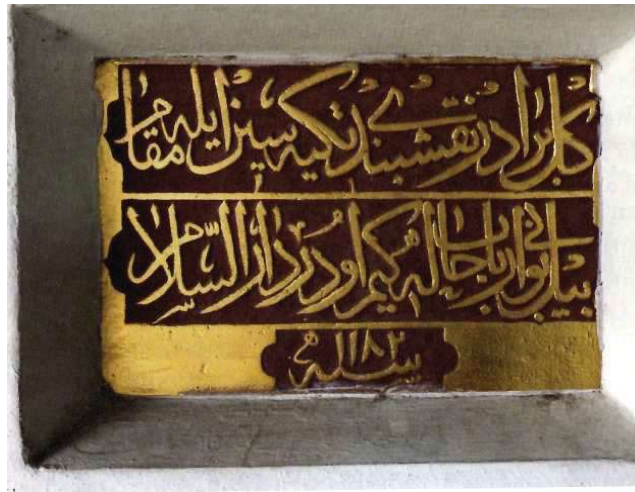 كل برادر نقشبندى تكيه سين ايله مقام
بيل بونى ارباب حاله كيم اودر دار السلام
سنه ١١٨٢